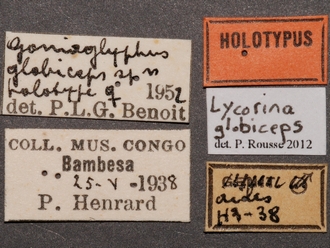 Gonioglyphus
globiceps sp n
holotype ♀ 1952
det. P.L.G. Benoit
COLL. MUS. CONGO
Bambesa
25-V-1938
P. Henrard
HOLOTYPUS
Lycorina
globiceps
det. P. Rousse 2012
H3-38